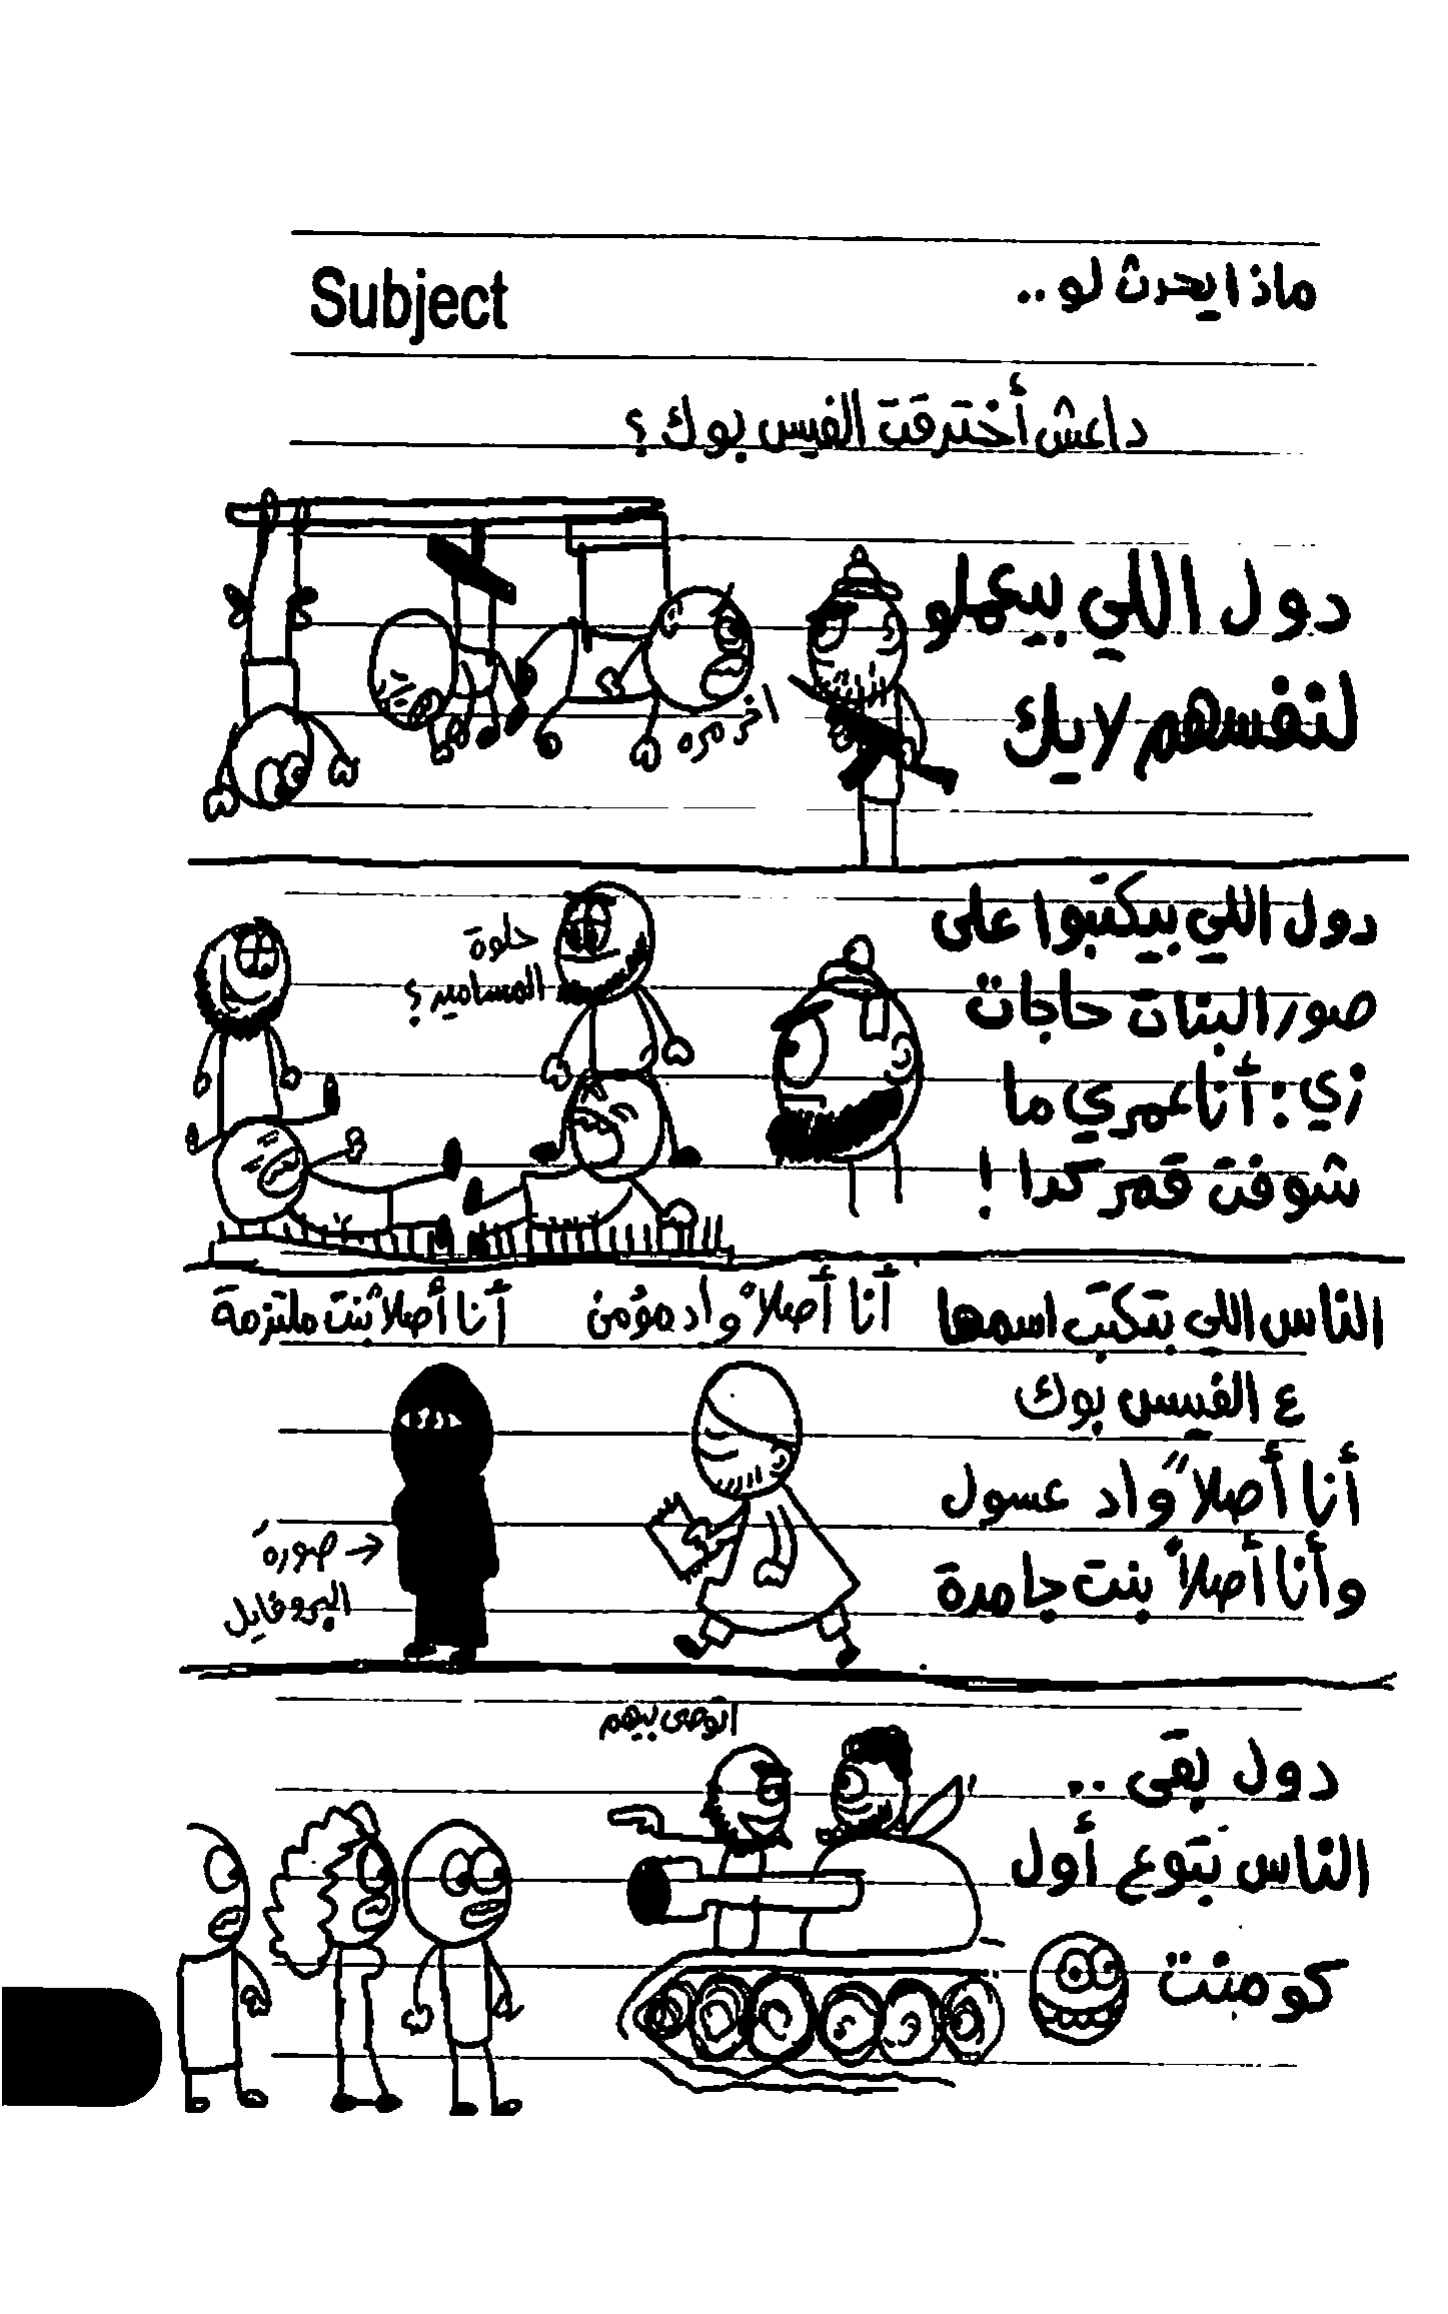 ماذا يحدث لو..
Subject
داعش أخترقت الفيس بوك ؟
دول اللي بيعملو
لنفسهم لايك
دول اللي بيكتبوا على
صور البنات حاجات
زي : أنا عمري ما
شوفت قمر كدا !
حلوة
المسامير ؟
الناس اللي بتكتب اسمها
ع الفيس بوك
أنا أصلاً واد عسول
وأنا أصلاً بنت جامدة
أنا أصلاً واد مؤمن
أنا أصلاً بنت ملتزمة
صورة
البروفايل
دول بقى ..
الناس بتوع أول
كومنت
اتوصى بيهم